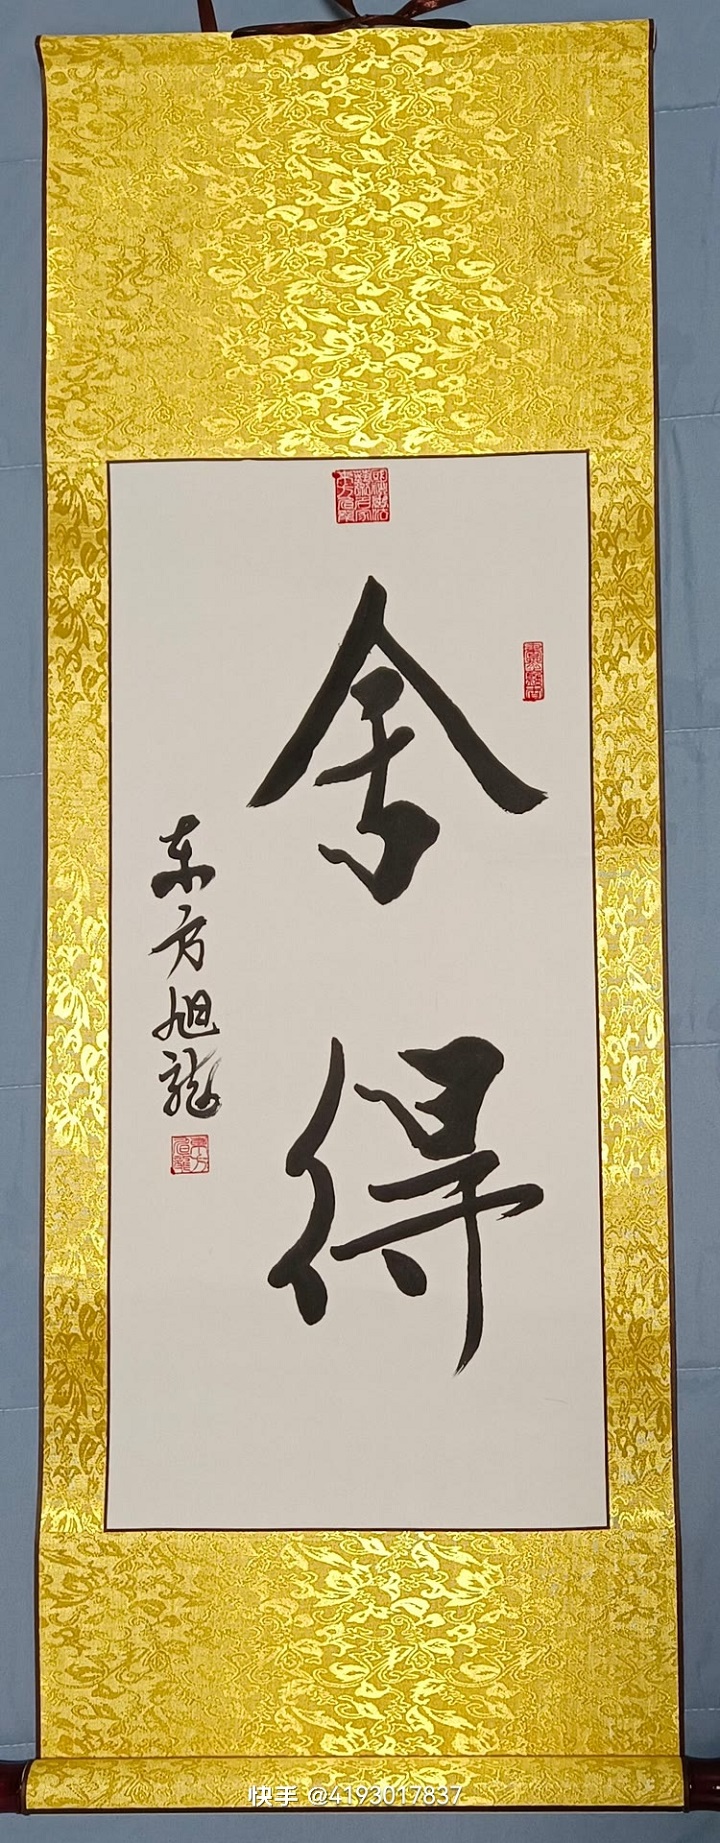 舍得
东方旭龙
快手 @4193017837